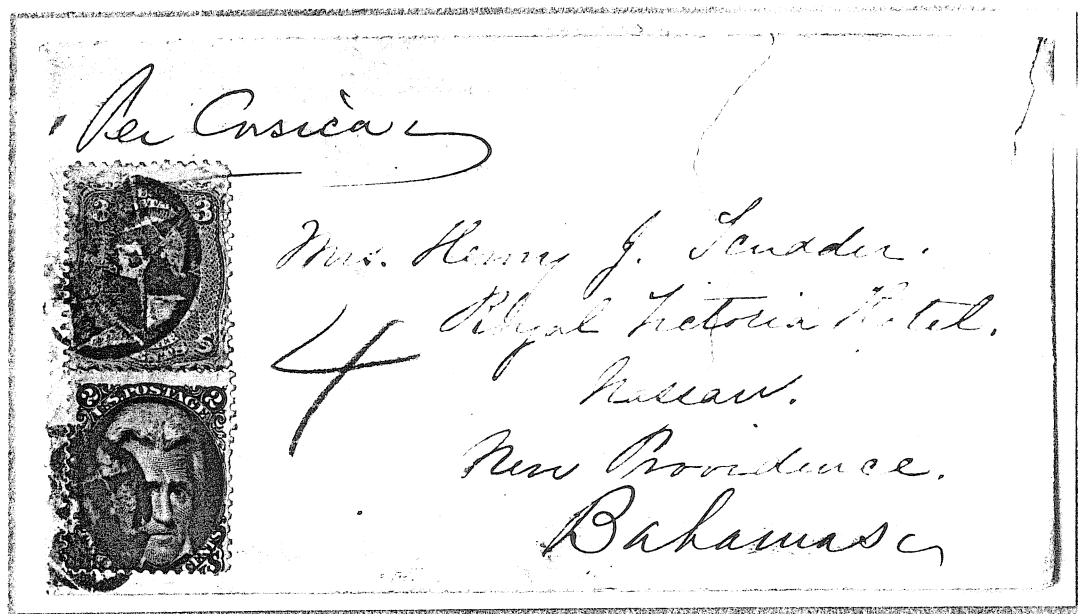 Per Corsica
3 3
U.S. POSTAGE
2 2
4
Mrs. Henry J. Scudder.
Royal Victoria Hotel.
Nassau.
New Providence.
Bahamas